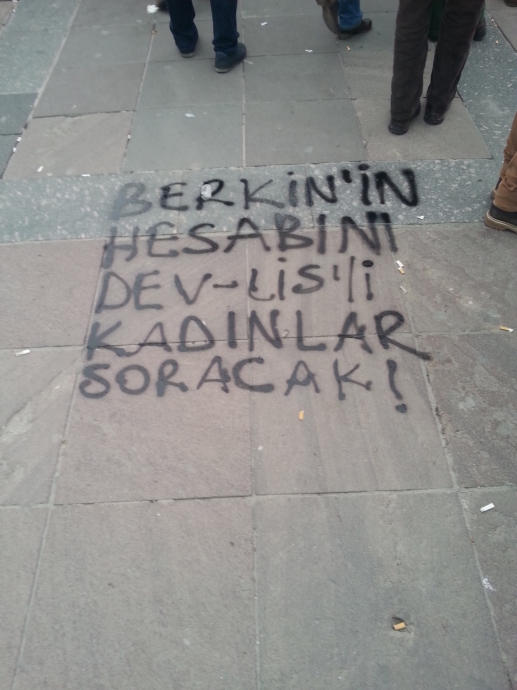 BERKİN'İN
HESABINI
DEV-LİS'Lİ
KADINLAR
SORACAK!